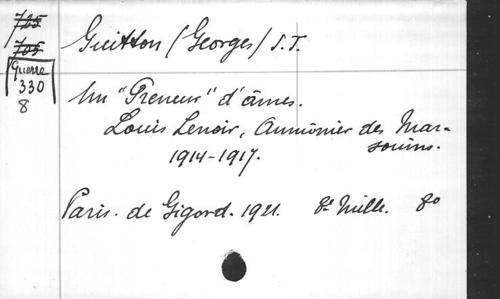 725
705
Guerre
330
8
Guitton (Georges) S.J.
Un "Preneur" d'âmes.
Louis Lenoir, Aumônier des Mar-
souins.
1914-1917.
Paris. de Gigord. 1921. 8e Mille. 8o